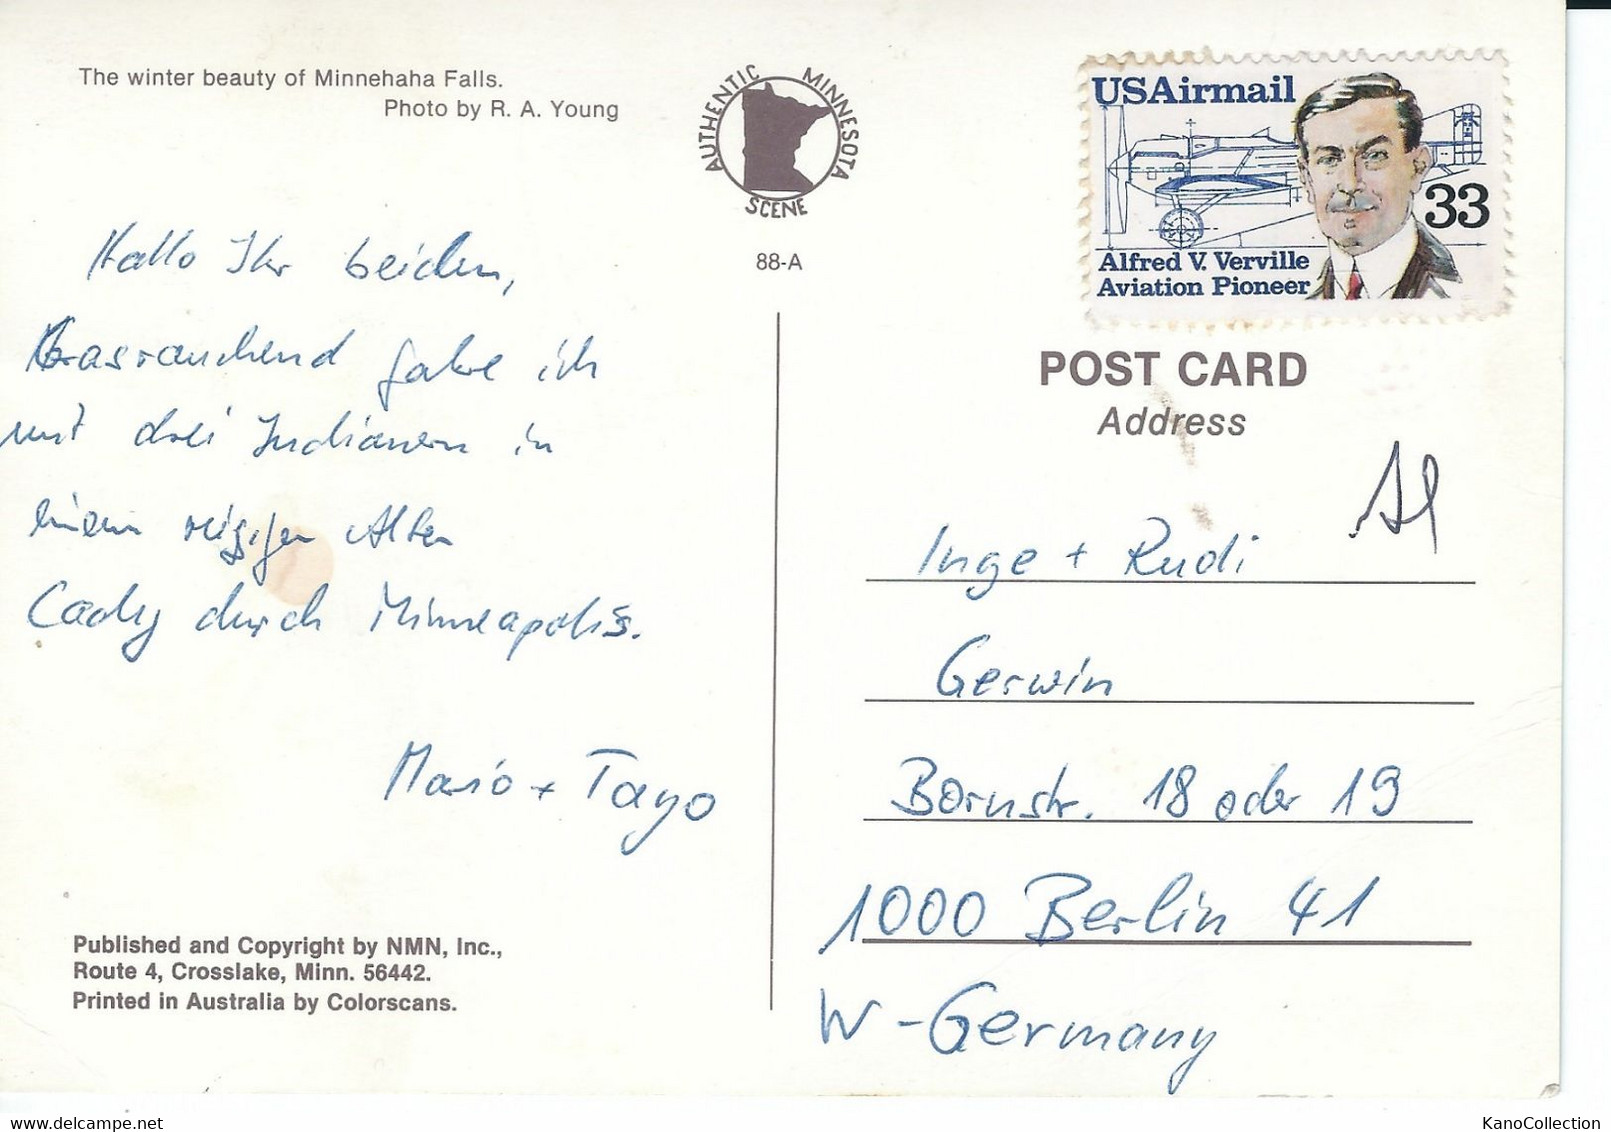 The winter beauty of Minnehaha Falls.
Photo by R. A. Young
AUTHENTIC MINNESOTA SCENE
88-A
USAirmail
33
Alfred V. Verville
Aviation Pioneer
Hallo Ihr beiden,
Grasrauchend fahre ich
mit drei Indianern in
einem riesigen alten
Cady durch Minneapolis.
Mario + Tayo
Published and Copyright by NMN, Inc.,
Route 4, Crosslake, Minn. 56442.
Printed in Australia by Colorscans.
POST CARD
Address
Inge + Rudi
Gerwin
Bornstr. 18 oder 19
1000 Berlin 41
W-Germany
KanoCollection